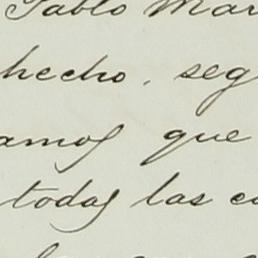 Pablo Mar
hecho, seg
amos que
todas las co